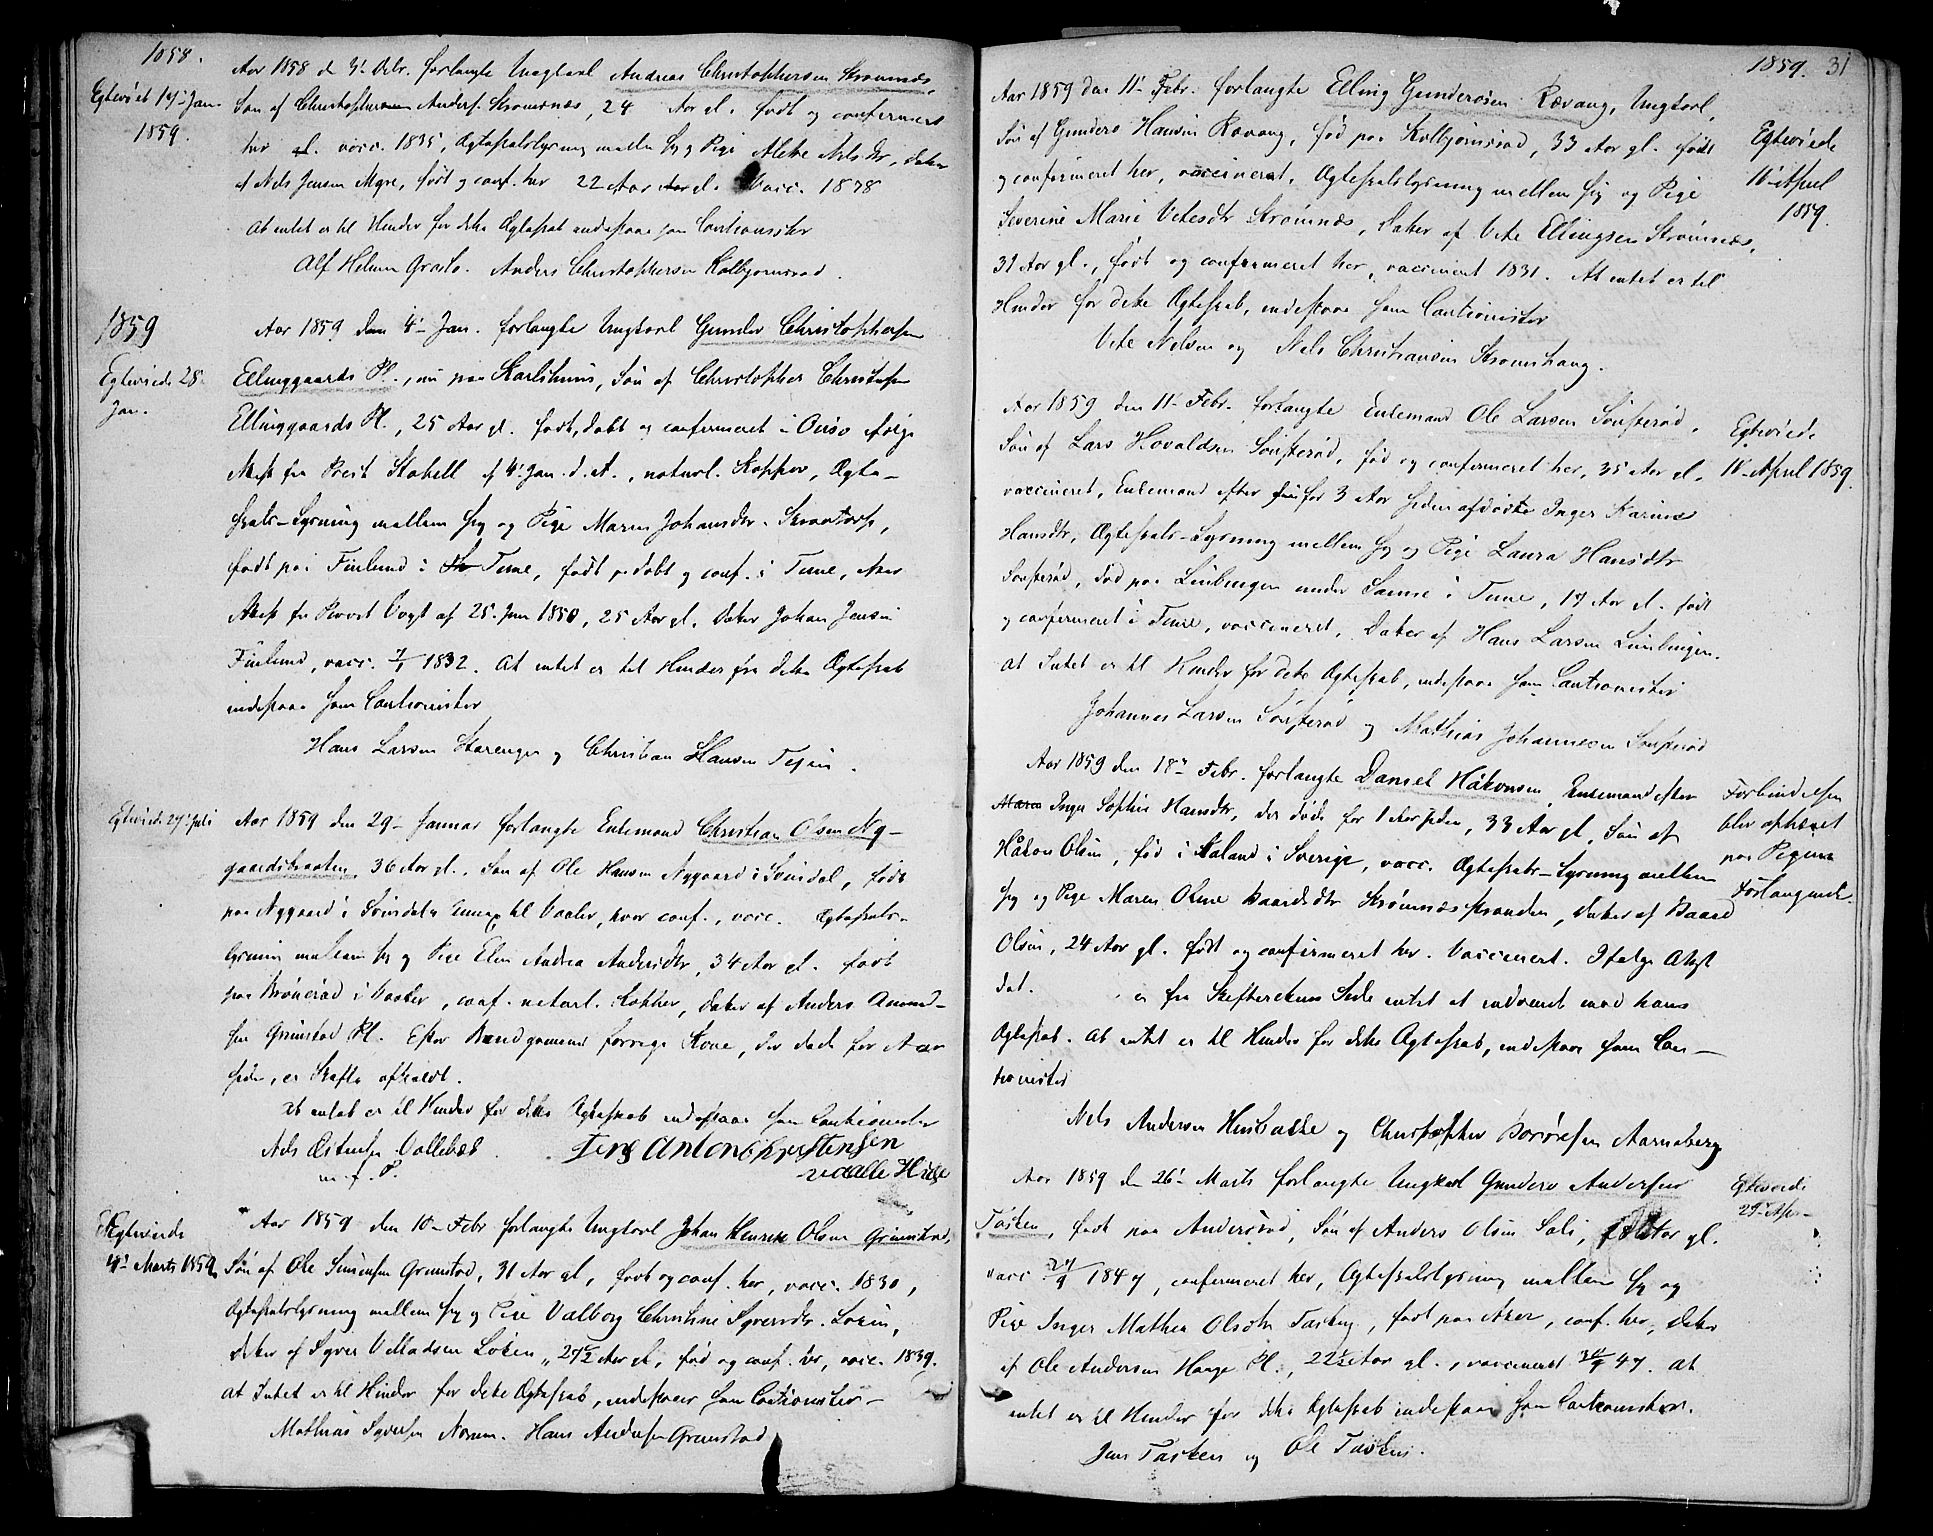 1858.
Egteviet 14de Jan.
1859.
Aar 1858 d 31 Dcbr. forlangte Ungkarl Andreas Christophersen Strømnæs,
Søn af Christophersen Anders. Strømnæs, 24 Aar gl. født og confirmeret
her vacc. 1835, Ægteskabslysning mellem sig og Pige Nilsdtr, Datter
af Nels Jensen Myre, født og conf. her 22 Aar gl. vacc. 1838
At intet er til Hinder for dette Ægteskab indestaae som Cautionister
Anders Christophersen Kolbjørnsrød.
1859
Egteviede 28
Jan.
Aar 1859 den 4de Jan. forlangte Ungkarl Gunder Christophersen
Ellinggaards Pl., nu paa Karlshuus, Søn af Christopher Christophersen
Ellinggaards Pl., 25 Aar gl. født, døbt og confirmeret i Onsø ifølge
Attest fra Prest Stabell af 4 Jan. d. A., naturl. Kopper, Ægte-
skabs-Lysning mellem sig og Pige Maren Johansdtr.
født paa Finlund i Tune, født, døbt og conf. i Tune,
Attest fra Provst Vogt af 25 Jan 1850, 25 Aar gl. Datter Johan Jensen
Finlund, vacc. 1832. At intet er til Hinder for dette Ægteskab
indestaae som Cautionister
Hans Larsen og Christian Hansen
Egteviede 27 Juli
Aar 1859 den 29de Januar forlangte Enkemand Christian Olsen Ny-
gaardsbraaten, 36 Aar gl., Søn af Ole Hansen Nygaard i Svindal, født
paa Nygaard i Svindals Annex til Vaaler, hvor conf., vacc. Ægteskabs-
lysning mellem sig og Pige Elen Andrea Andersdtr, 34 Aar gl. født
paa i Vaaler, conf. naturl. Kopper, Datter af Anders Amund-
sen Grimstad Pl. Efter Brudgommens forrige Kone, der døde for Aar
siden, er Skifte afholdt.
At intet er til Hinder for dette Ægteskab indestaae som Cautionister
Nels Østensen Vallebæk
m. f. P.
Jens Anton Chrestensen
Egteviede
4de Marts 1859.
Aar 1859 den 10de Febr forlangte Ungkarl Johan Henrik Olsen Grimstad,
Søn af Ole Simensen Grimstad, 31 Aar gl, født og conf. her, vacc. 1830,
Ægteskabslysning mellem sig og Pige Valborg Christine Syversdtr. Løken,
Datter af Syver Madsen Løken, 27½ Aar gl, født og conf. her, vacc. 1839.
At Intet er til Hinder for dette Ægteskab, indestaaer som Cautionister
Mathias Syversen Norum. Hans Andersen Grimstad
1859. 31
Aar 1859 den 11te Febr. forlangte Elling Gundersen Rævang, Ungkarl,
Søn af Gunders Hansen Rævang, fød paa Kolbjørnsrød, 33 Aar gl. født
og confirmeret her, vaccineret, Ægteskabslysning mellem sig og Pige
Severine Marie Vetesdtr Strømnæs, Datter af Vete Ellingsen Strømnæs,
31 Aar gl., født og confirmeret her, vaccineret 1831. At intet er til
Hinder for dette Ægteskab, indestaae som Cautionister
Vete Nilsen og Nels Christiansen Strømshaug.
Egteviede
11te April
1859.
Aar 1859 den 11te Febr. forlangte Enkemand Ole Larsen Sonsterød,
Søn af Lars Hovaldsen Sonsterød, fød og confirmeret her, 35 Aar gl.
vaccineret, Enkemand efter for 3 Aar siden afdødte Inger Karine
Hansdtr, Ægteskabs-Lysning mellem sig og Pige Laura Hansdtr
Sonsterød, fød paa Linbingen under Sande i Tune, 19 Aar gl. født
og confirmeret i Tune, vaccineret, Datter af Hans Larsen Linbingen.
At Intet er til Hinder for dette Ægteskab, indestaae som Cautionister
Johannes Larsen Sonsterød og Mathias Johannesen Sonsterød
Egteviede
11te April 1859.
Aar 1859 den 18de Febr. forlangte Daniel Håkonsen, Enkemand efter
Maren Inger Sophie Hansdtr, der døde for 1 Aar siden, 33 Aar gl, Søn af
Håkon Olsen, fød i Daland i Sverige, vacc. Ægteskabs-Lysning mellem
sig og Pige Maren Oline Baardsdtr Strømnæsstranden, Datter af Baard
Olsen, 24 Aar gl. født og confirmeret her. Vaccineret. Ifølge Attest
dat. er fra Skifterettens Side intet at indvende mod hans
Ægteskab. At intet er til Hinder for dette Ægteskab, indestaae som Cau-
tionister
Nels Andersen Husbakke og Christopher Aarneberg
Forbindelsen
blev ophævet
paa Pigens
Forlangende.
Aar 1859 d 26de Marts forlangte Ungkarl Gunders Andersen
Tasken, født paa Andersrød, Søn af Anders Olsen Sali, Aar gl.
vacc 1847, confirmeret her, Ægteskabslysning mellem sig og
Pige Inger Mathea Olsdtr Tasken, født paa Aker, conf. her, Datter
af Ole Andersen Hauge Pl., 22½ Aar gl., vaccineret 47. At
intet er til Hinder for dette Ægteskab indestaae som Cautionister.
Jens Tasken og Ole Tasken.
Egteviede
29de Apr